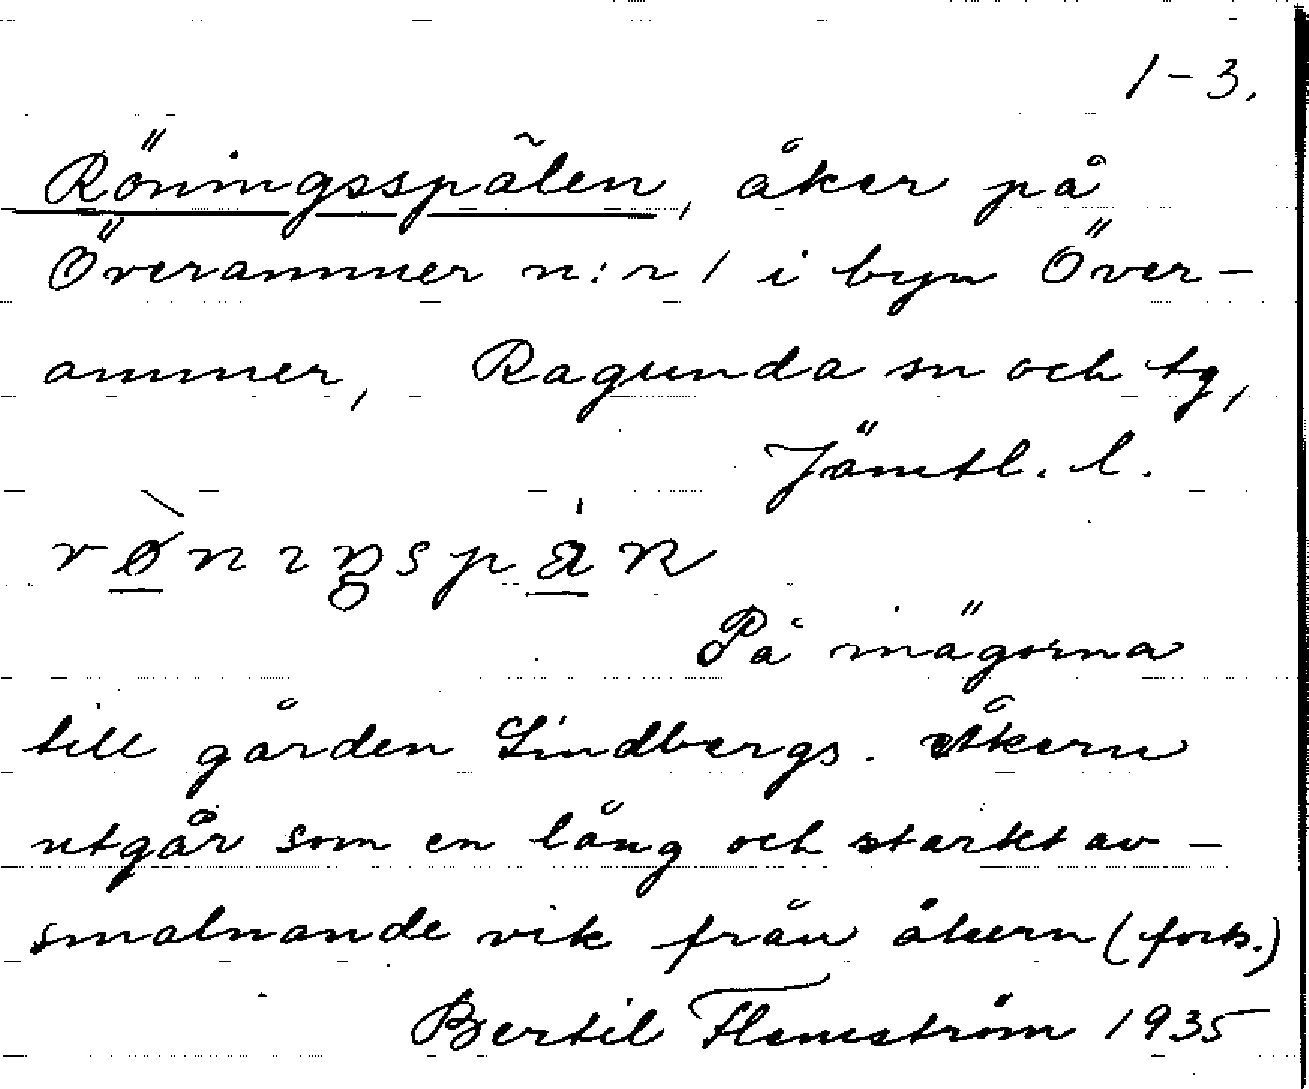 1-3.
Röningsspãlen, åker på
Överammer n:r 1 i byn Över-
ammer, Ragunda sn och tg,
Jämtl. l.
På inägorna
till gården Lindbergs. Åkern
utgår som en lång och starkt av-
smalnande vik från åkern (forts.)
Bertil Flemström 1935